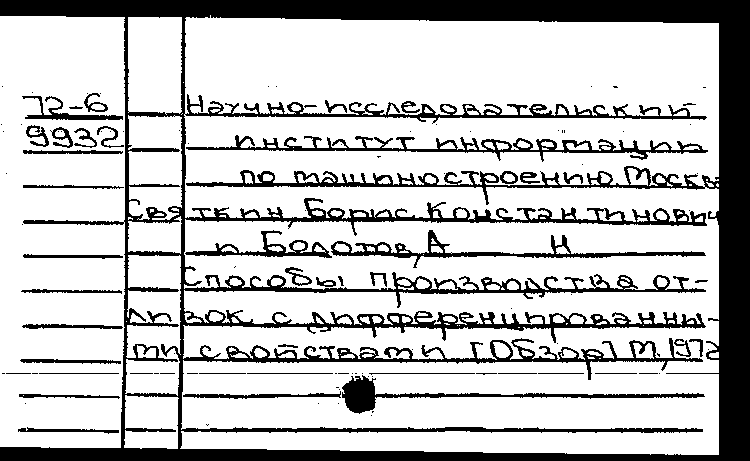 72-6 Научно-исследовательский
9932 институт информации
по машиностроению. Москва
Святкин, Борис Константинович
и Болотов, А Н
Способы производства от-
ливок с дифференцированны-
ми свойствами [Обзор] М, 1972